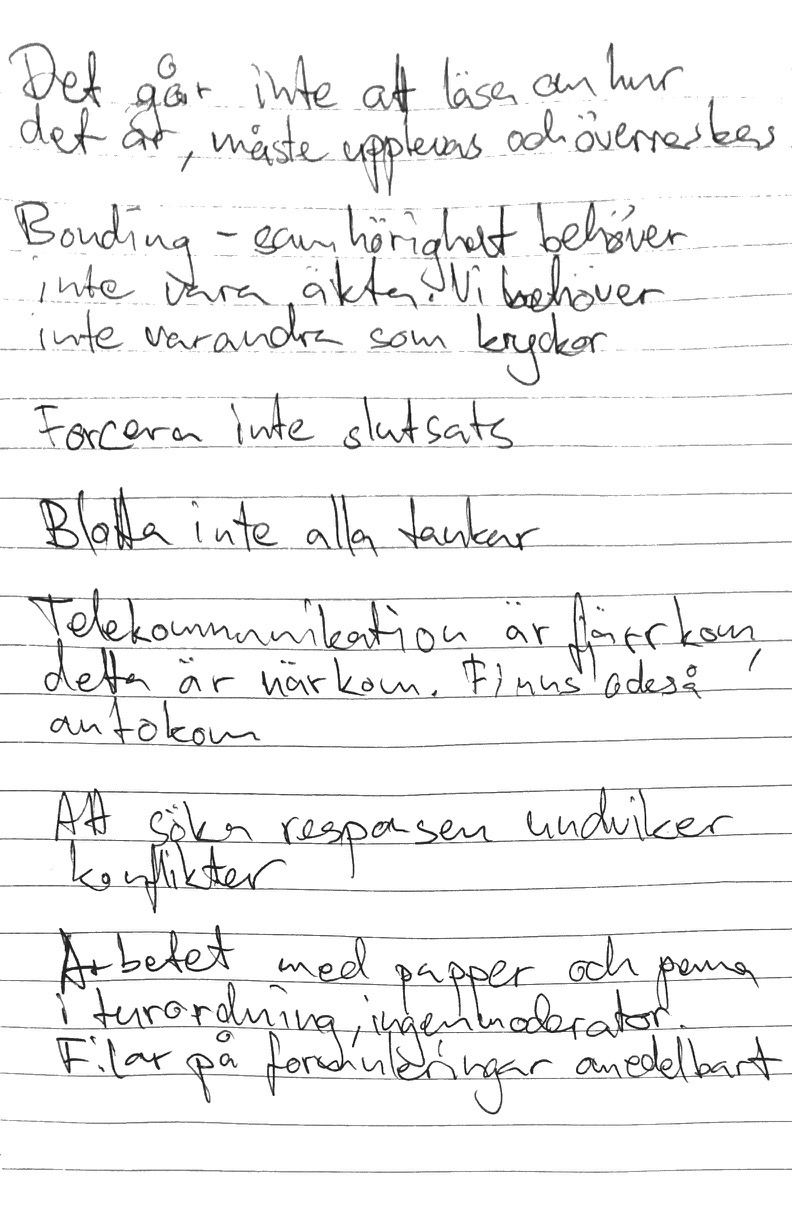 Det går inte att läsa om hur
det är, måste upplevas och överraskas
Bonding - samhörighet behöver
inte vara äkta? Vi behöver
inte varandra som kryckor
Forcera inte slutsats
Blotta inte alla tankar
Telekommunikation är fjärrkom,
detta är närkom. Finns också
autokom
Att söka responsen undviker
konflikter
Arbetet med papper och penna
i turordning, ingen moderator.
Filar på formuleringar omedelbart